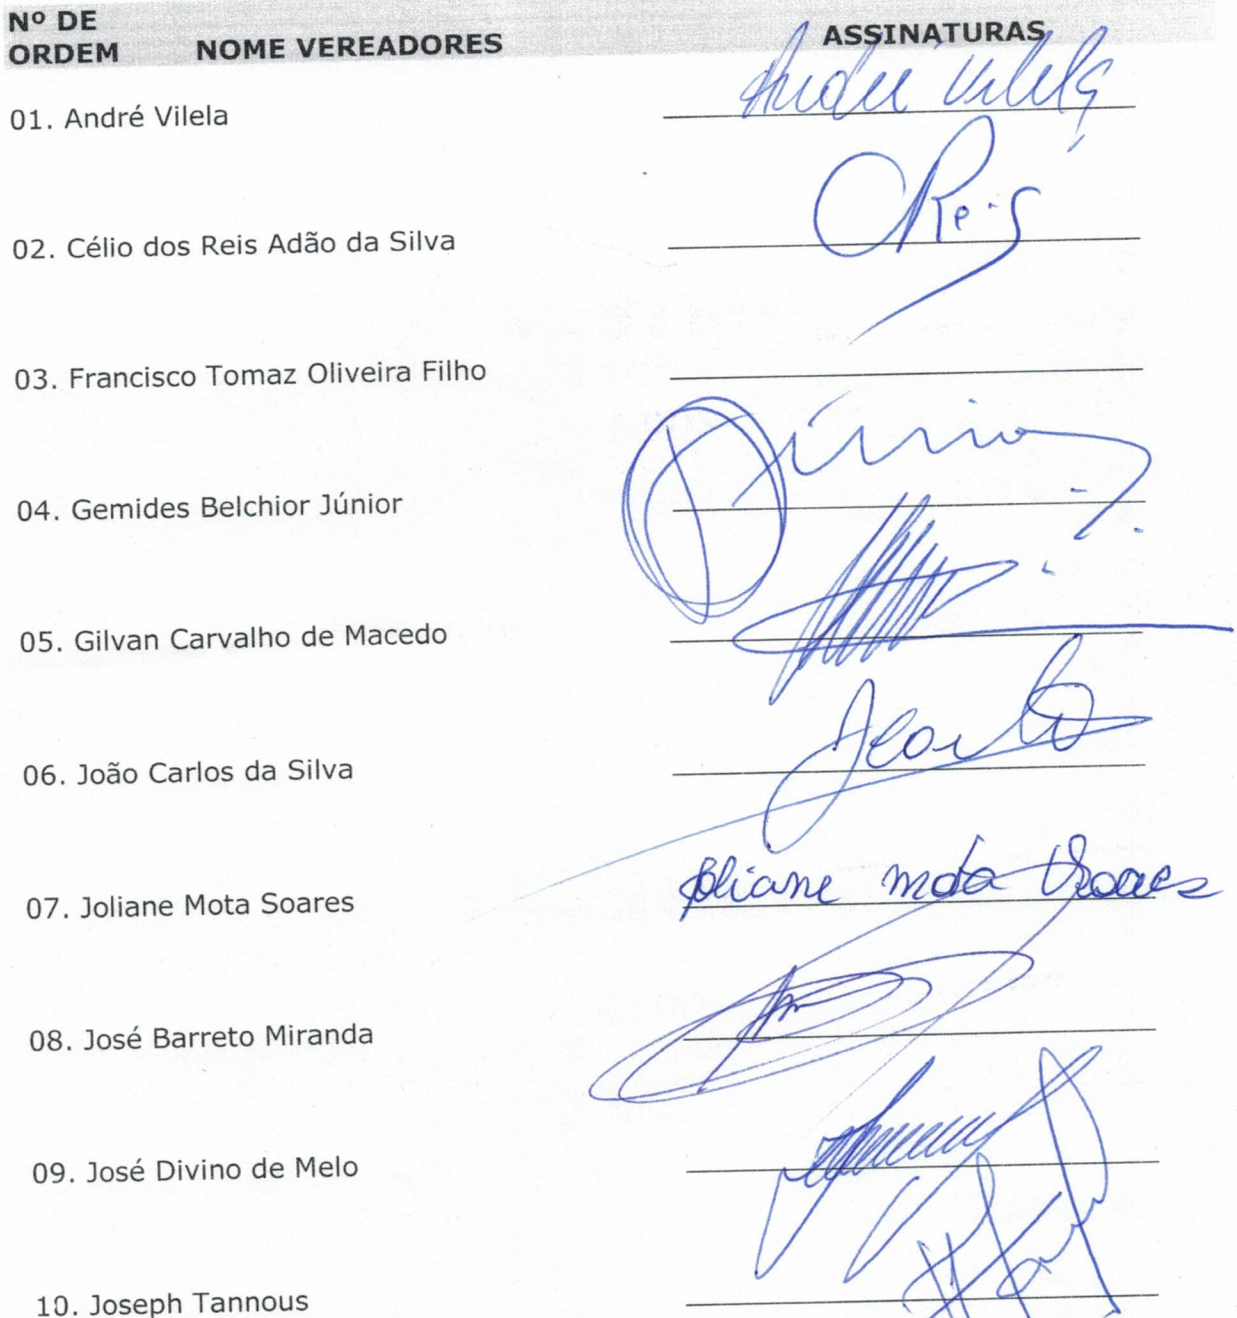 Nº DE
ORDEM NOME VEREADORES ASSINATURAS
01. André Vilela André Vilela
02. Célio dos Reis Adão da Silva CReis
03. Francisco Tomaz Oliveira Filho
04. Gemides Belchior Júnior
05. Gilvan Carvalho de Macedo
06. João Carlos da Silva
07. Joliane Mota Soares Joliane Mota Soares
08. José Barreto Miranda
09. José Divino de Melo
10. Joseph Tannous